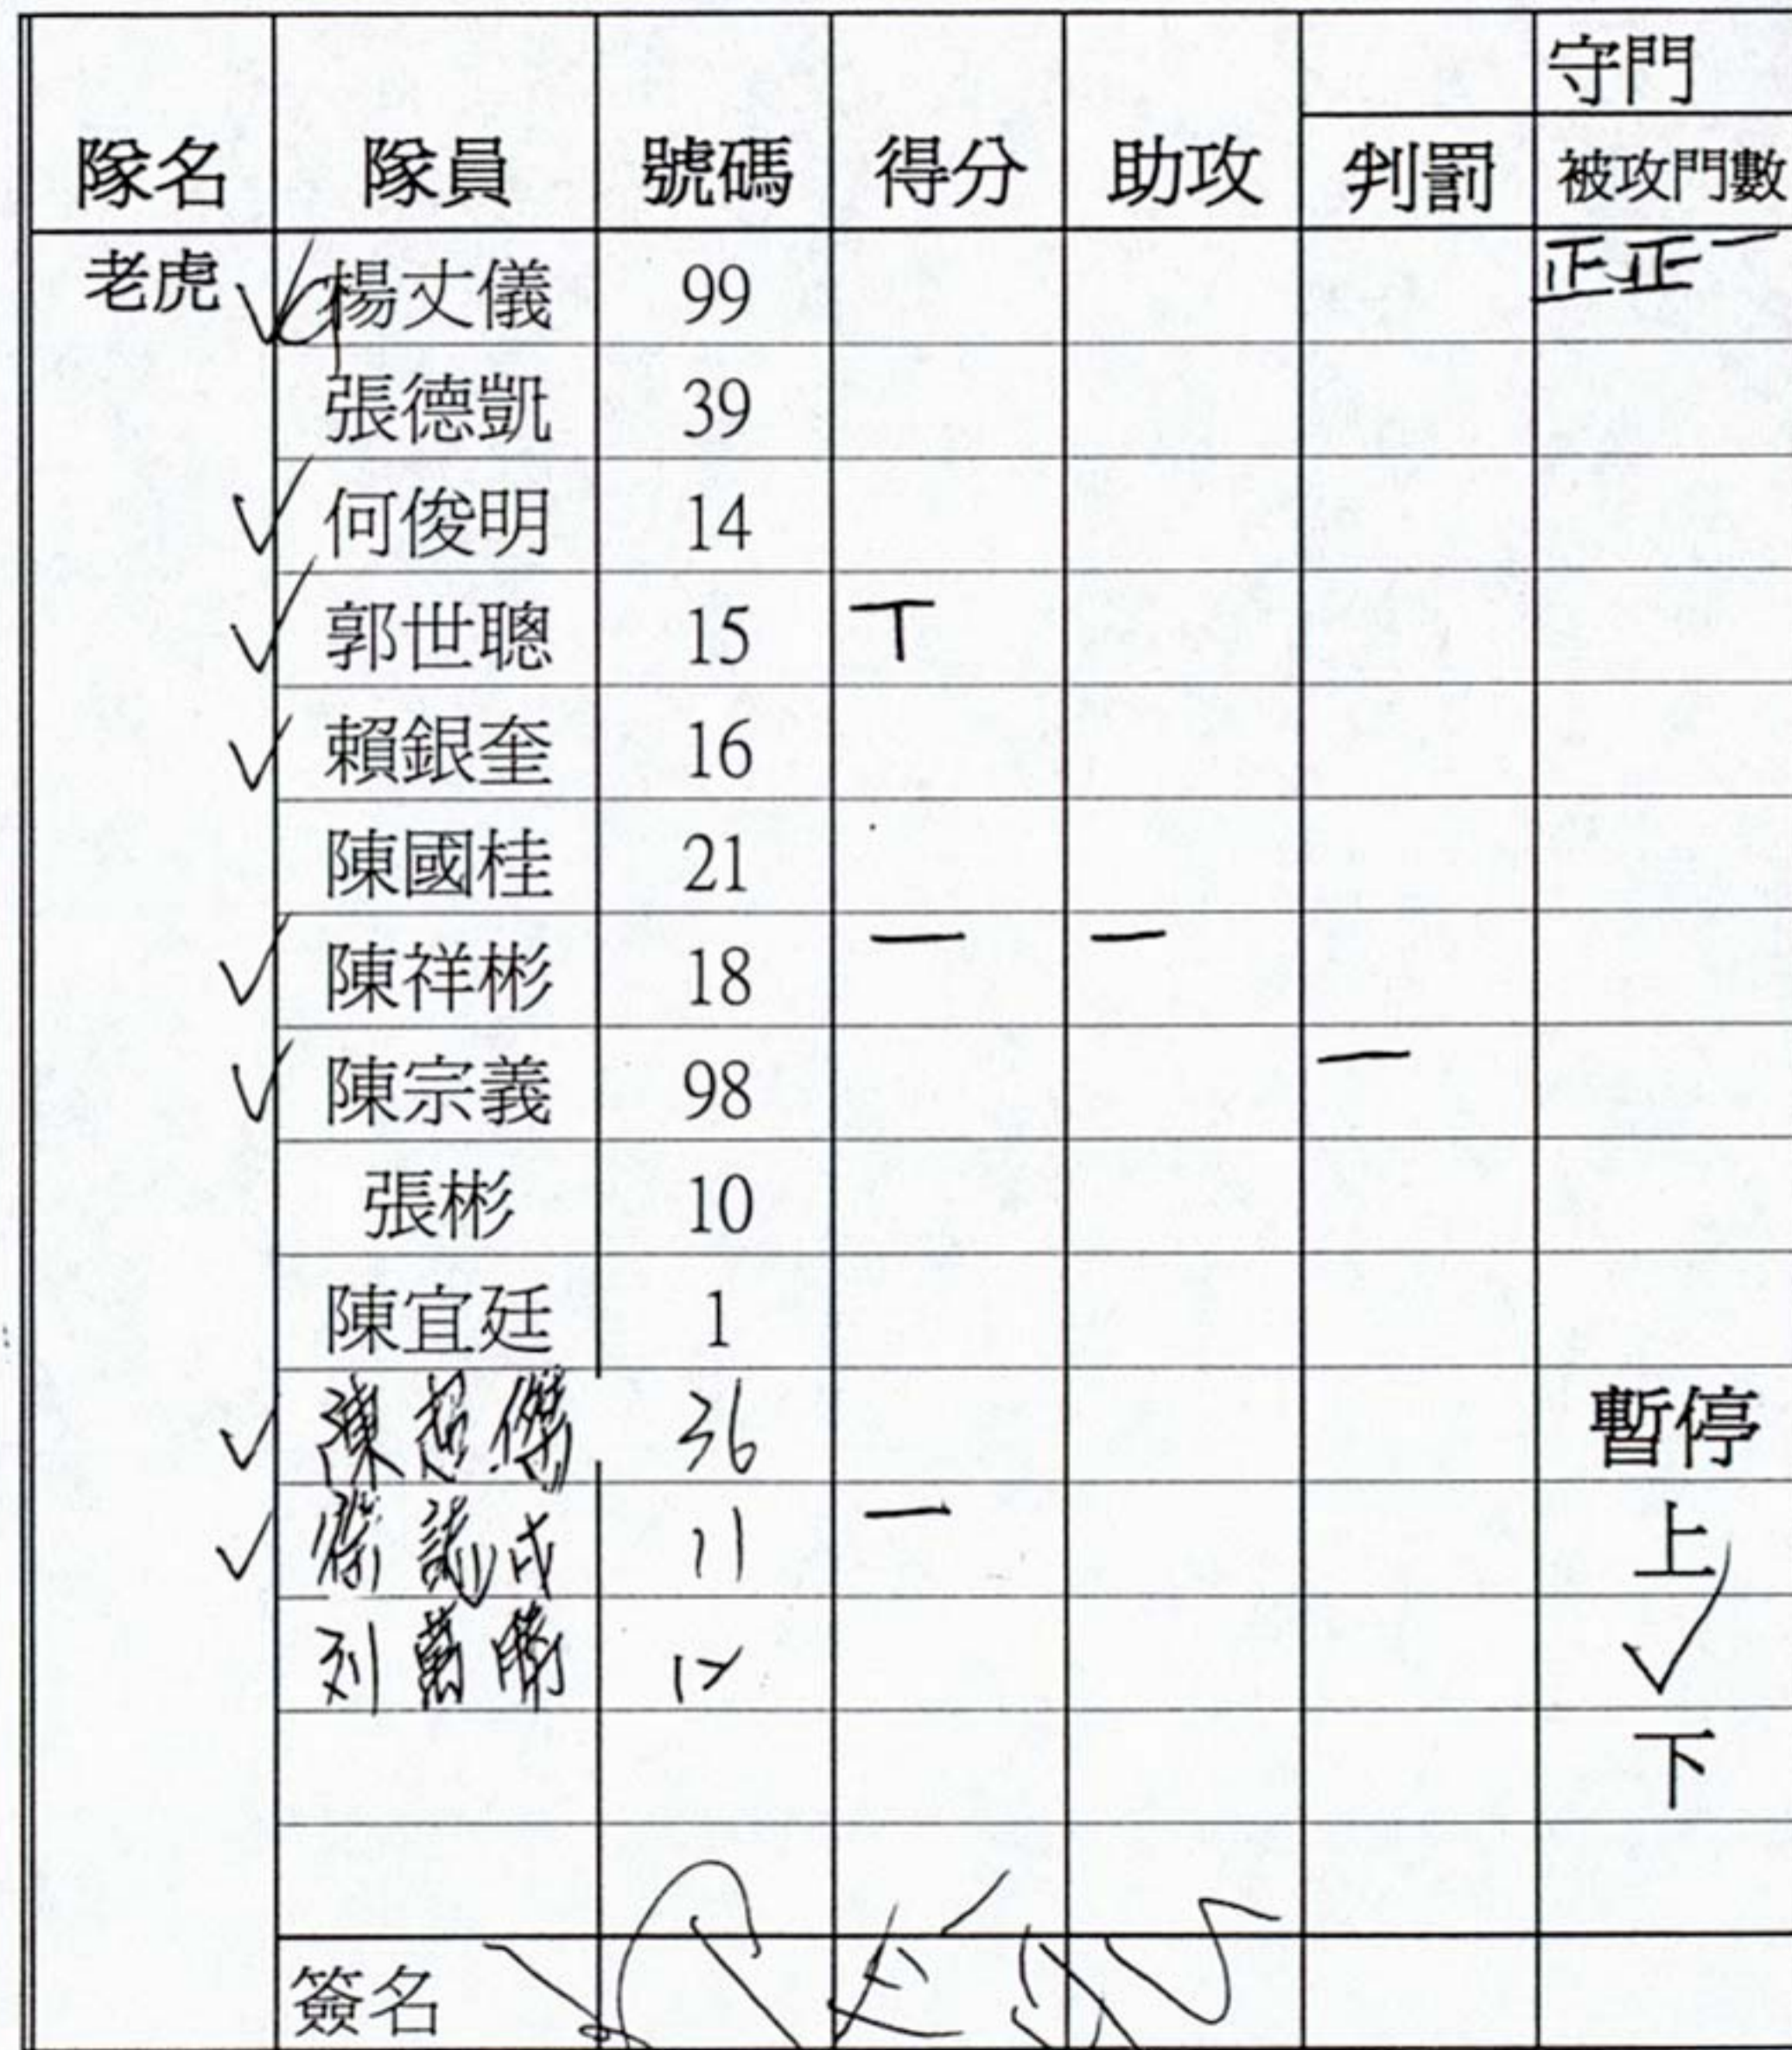 守門
隊名 隊員 號碼 得分 助攻 判罰 被攻門數
老虎 ✓ 楊丈儀 99 正正一
張德凱 39
✓ 何俊明 14
✓ 郭世聰 15 丅
✓ 賴銀奎 16
陳國桂 21
✓ 陳祥彬 18 一 一
✓ 陳宗義 98 一
張彬 10
陳宜廷 1
✓ 陳超傑 36 暫停
✓ 11 一 上
刘萬勝 12 ✓
下
簽名